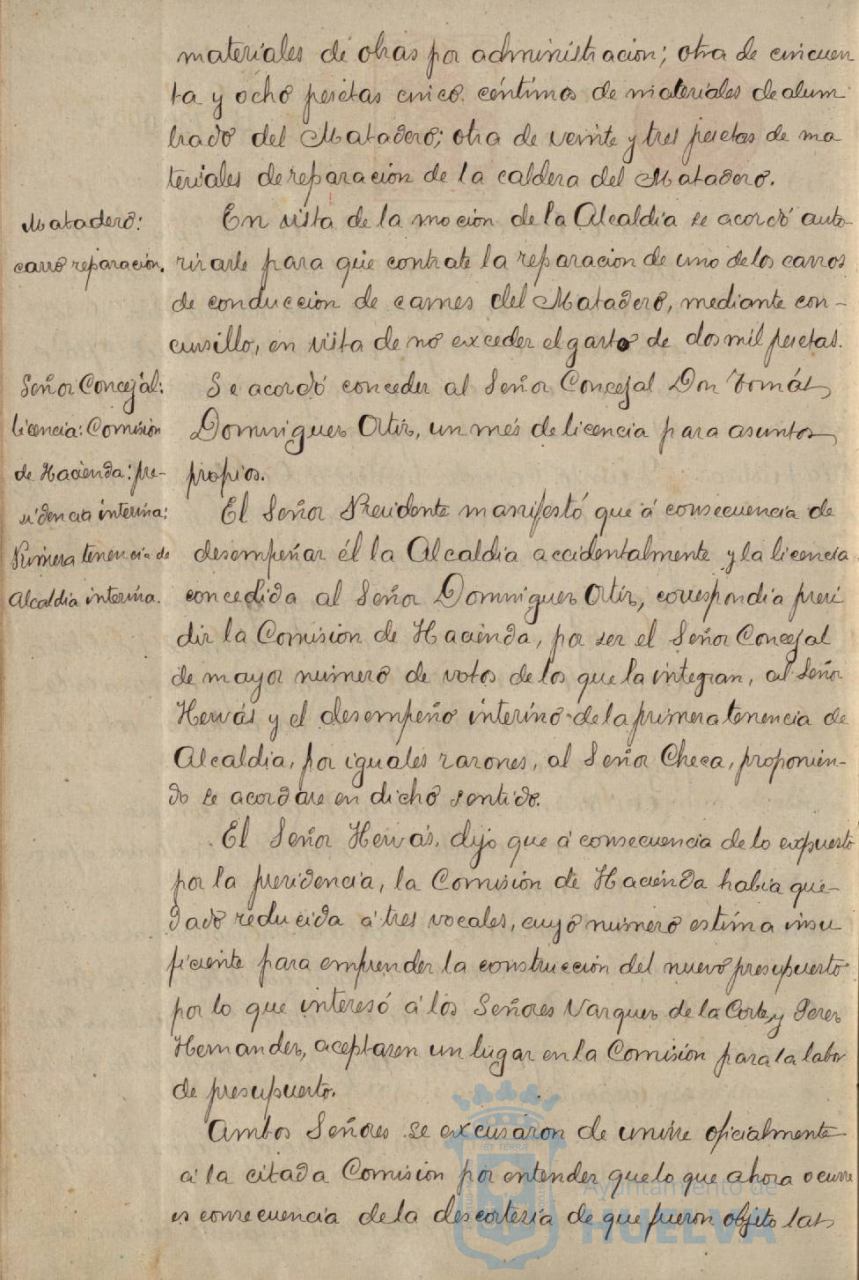 materiales de obras por administración; otra de cincuen
ta y ocho pesetas cinco céntimos de materiales de alum
brado del Matadero; otra de veinte y tres pesetas de ma
teriales de reparación de la caldera del Matadero.
Matadero:
carro reparación.
En vista de la moción de la Alcaldía se acordó auto-
rizarle para que contrate la reparación de uno de los carros
de conducción de carnes del Matadero, mediante con-
cursillo, en vista de no exceder el gasto de dos mil pesetas.
Señor Concejal:
licencia: Comisión
de Hacienda: pre-
sidencia interina:
Primera tenencia de
Alcaldía interina.
Se acordó conceder al Señor Concejal Don Tomás
Dominguez Ortiz, un més de licencia para asuntos
propios.
El Señor Presidente manifestó que á consecuencia de
desempeñar él la Alcaldía accidentalmente y la licencia
concedida al Señor Dominguez Ortiz, correspondía presi
dir la Comisión de Hacienda, por ser el Señor Concejal
de mayor número de votos de los que la integran, al Señor
Hervás y el desempeño interino de la primera tenencia de
Alcaldía, por iguales razones, al Señor Checa, proponien-
do se acordase en dicho sentido.
El Señor Hervás, dijo que á consecuencia de lo expuesto
por la presidencia, la Comisión de Hacienda había que-
dado reducida á tres vocales, cuyo número estima insu
ficiente para emprender la construcción del nuevo presupuesto
por lo que interesó á los Señores Vazquez de la Corte y Perez
Hernandez, aceptasen un lugar en la Comisión para la labor
de presupuesto.
Ambos Señores se excusáron de unirse oficialmente
á la citada Comisión por entender que lo que ahora ocurre
es consecuencia de la descortesía de que fueron objeto las
Ayuntamiento de
HUELVA